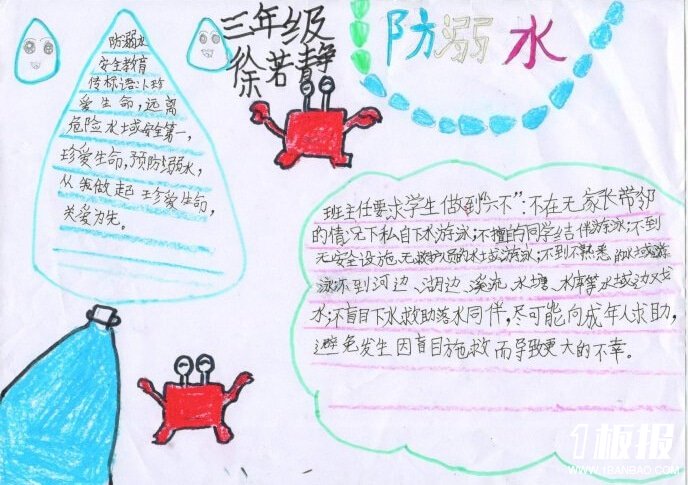 三年级
徐若静
防溺水
防溺水
安全教育
传标语:1.珍
爱生命,远离
危险水域安全第一,
珍爱生命,预防溺水,
从我做起 珍爱生命,
关爱为先。
班主任要求学生做到“六不”:不在无家长带邻
的情况下私自下水游泳;不擅的同学结伴游泳;不到
无安全设施、无救护人员的水域游泳;不到不熟悉的水域游
泳;不到河边、湖边、溪流、水塘、水库等水域边戏
水;不盲目下水救助落水同伴,尽可能向成年人求助,
避免发生因盲目施救而导致更大的不幸。
1板报
WWW.1BANBAO.COM